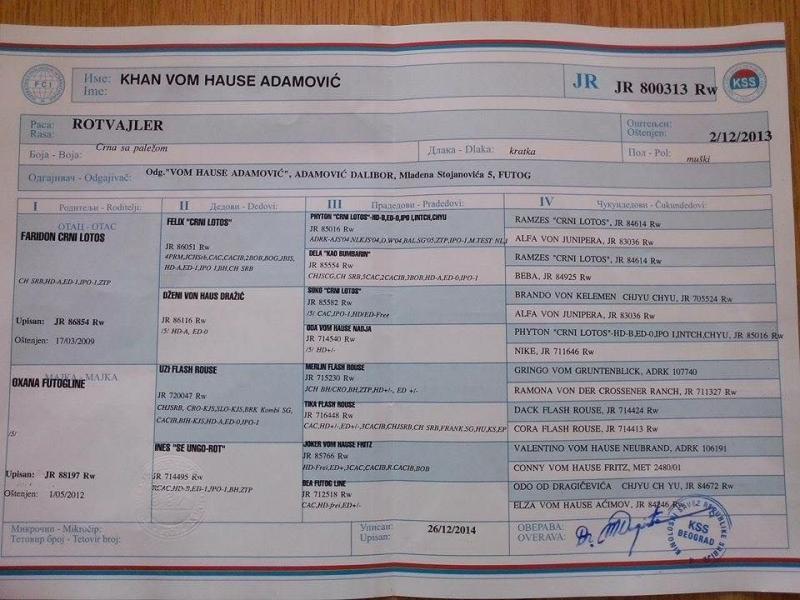 FCI
Име:
Ime:
KHAN VOM HAUSE ADAMOVIĆ
JR JR 800313 Rw
KSS
Раса:
Rasa:
ROTVAJLER
Оштењен:
Oštenjen:
2/12/2013
Боја - Boja:
Crna sa paležom
Длака - Dlaka:
kratka
Пол - Pol:
muški
Одгајивач - Odgajivač:
Odg."VOM HAUSE ADAMOVIĆ", ADAMOVIĆ DALIBOR, Mladena Stojanovića 5, FUTOG
I Родитељи - Roditelji:
II Дедови - Dedovi:
III Прадедови - Pradedovi:
IV Чукундедови - Čukundedovi:
ОТАЦ - OTAC
FARIDON CRNI LOTOS
CH SRB,HD-A,ED-1,IPO-1,ZTP
Upisan: JR 86854 Rw
Oštenjen: 17/03/2009
МАЈКА - MAJKA
OXANA FUTOGLINE
/5/
Upisan: JR 88197 Rw
Oštenjen: 1/05/2012
FELIX "CRNI LOTOS"
JR 86051 Rw
4PRM,JCHSrb,CAC,CACIB,2BOB,BOG,JBIS,
HD-A,ED-1,IPO 1,BH,CH SRB
DŽENI VON HAUS DRAŽIĆ
JR 86116 Rw
/5/ HD-A, ED-0
UZI FLASH ROUSE
JR 720047 Rw
CHJSRB, CRO-KJS,SLO-KJS,BRK Kombi SG,
CACIB,BIH-KJS,HD-A,ED-0,IPO-1
INES "SE UNGO-ROT"
JR 714495 Rw
CAC,HD-B,ED-1,IPO-1,BH,ZTP
PHYTON "CRNI LOTOS"-HD-B,ED-0,IPO I,INTCH,CHYU
JR 85016 Rw
ADRK-AJS'04,NLEJS'04,D.W'04,BAI.SG'05,ZTP,IPO-1,M.TEST NL,I
DELA "KAO BUMBARIN"
JR 85554 Rw
CHJSCG,CH SRB,5CAC,2CACIB,3BOB,HD-A,ED-0,IPO-1
SOKO "CRNI LOTOS"
JR 85582 Rw
/5/ CAC,IPO-1,HD/ED-Free
ODA VOM HAUSE NADJA
JR 714540 Rw
/5/ HD+/-
MERLIN FLASH ROUSE
JR 715230 Rw
JCH BH/CRO,BH,ZTP,HD+/-, ED +/-
TIKA FLASH ROUSE
JR 716448 Rw
CAC,HD+/-,ED+/-,3CACIB,CHJSRB,CH SRB,FRANK.SG,HU,KS,EP
JOKER VOM HAUSE FRITZ
JR 85766 Rw
HD-Frei,ED+,3CAC,CACIB,R.CACIB,BOB
BEA FUTOG LINE
JR 712518 Rw
CAC,HD-frei,ED+/-
RAMZES "CRNI LOTOS", JR 84614 Rw
ALFA VON JUNIPERA, JR 83036 Rw
RAMZES "CRNI LOTOS", JR 84614 Rw
BEBA, JR 84925 Rw
BRANDO VON KELEMEN CHJYU CHYU, JR 705524 Rw
ALFA VON JUNIPERA, JR 83036 Rw
PHYTON "CRNI LOTOS"-HD-B,ED-0,IPO I,INTCH,CHYU, JR 85016 Rw
NIKE, JR 711646 Rw
GRINGO VOM GRUNTENBLICK, ADRK 107740
RAMONA VON DER CROSSENER RANCH, JR 711327 Rw
DACK FLASH ROUSE, JR 714424 Rw
CORA FLASH ROUSE, JR 714413 Rw
VALENTINO VOM HAUSE NEUBRAND, ADRK 106191
CONNY VOM HAUSE FRITZ, MET 2480/01
ODO OD DRAGIČEVIĆA CHJYU CH YU, JR 84672 Rw
ELZA VOM HAUSE AĆIMOV, JR 84246 Rw
Микрочип - Mikročip:
Тетовир број - Tetovir broj:
Уписан:
Upisan:
26/12/2014
ОВЕРАВА:
OVERAVA:
Dr.
KSS
BEOGRAD